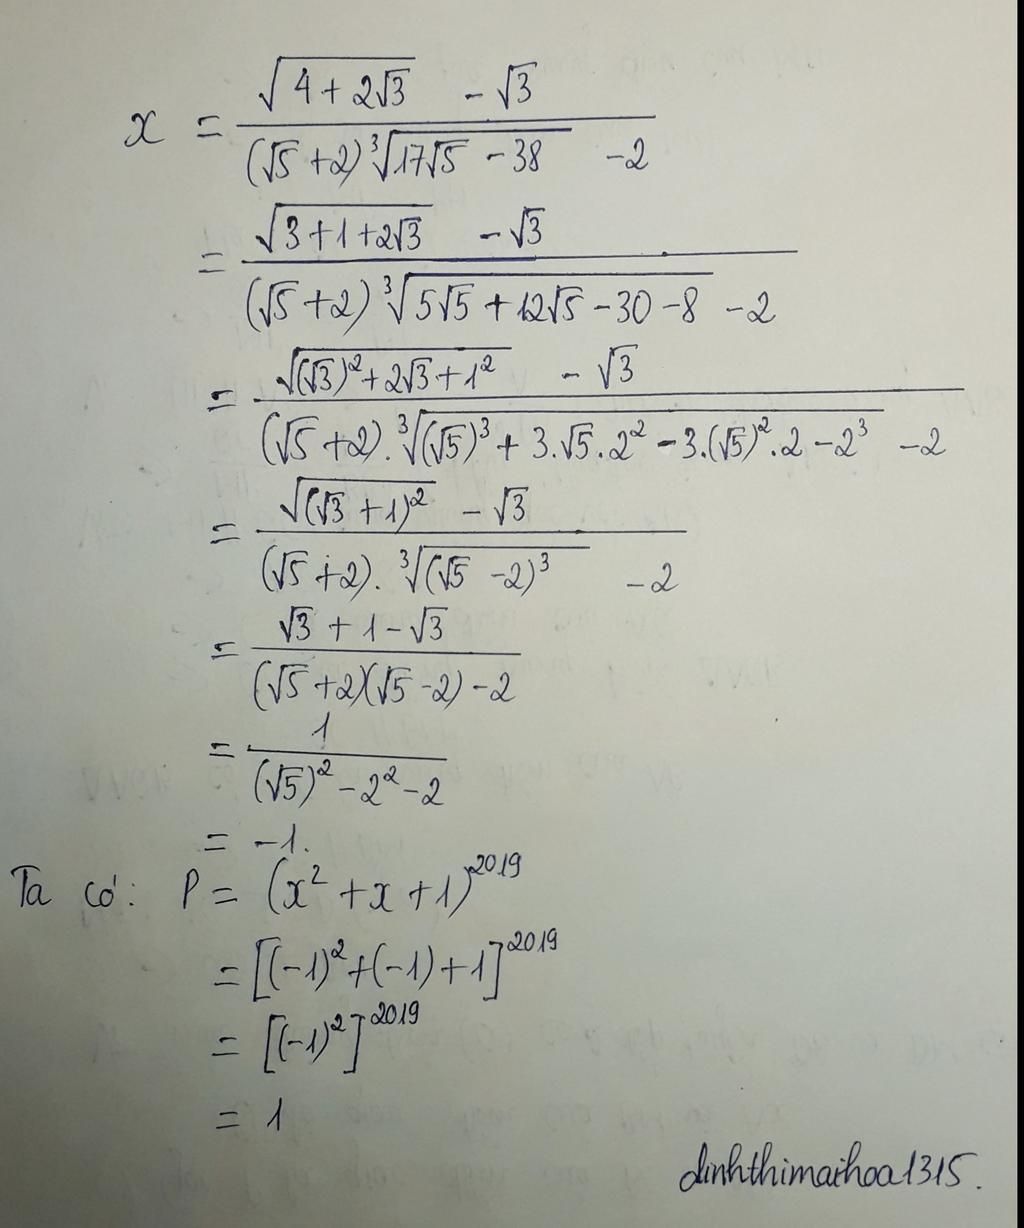 x = \frac{\sqrt{4+2\sqrt{3}} - \sqrt{3}}{(\sqrt{5}+2)\sqrt[3]{17\sqrt{5}-38} - 2}
= \frac{\sqrt{3+1+2\sqrt{3}} - \sqrt{3}}{(\sqrt{5}+2)\sqrt[3]{5\sqrt{5}+12\sqrt{5}-30-8} - 2}
= \frac{\sqrt{(\sqrt{3})^2+2\sqrt{3}+1^2} - \sqrt{3}}{(\sqrt{5}+2).\sqrt[3]{(\sqrt{5})^3+3.\sqrt{5}.2^2-3.(\sqrt{5})^2.2-2^3} - 2}
= \frac{\sqrt{(\sqrt{3}+1)^2} - \sqrt{3}}{(\sqrt{5}+2).\sqrt[3]{(\sqrt{5}-2)^3} - 2}
= \frac{\sqrt{3}+1-\sqrt{3}}{(\sqrt{5}+2)(\sqrt{5}-2)-2}
= \frac{1}{(\sqrt{5})^2-2^2-2}
= -1.
Ta có: P = (x^2+x+1)^{2019}
= [(-1)^2+(-1)+1]^{2019}
= [(-1)^2]^{2019}
= 1
dinhthimaihoa1315.